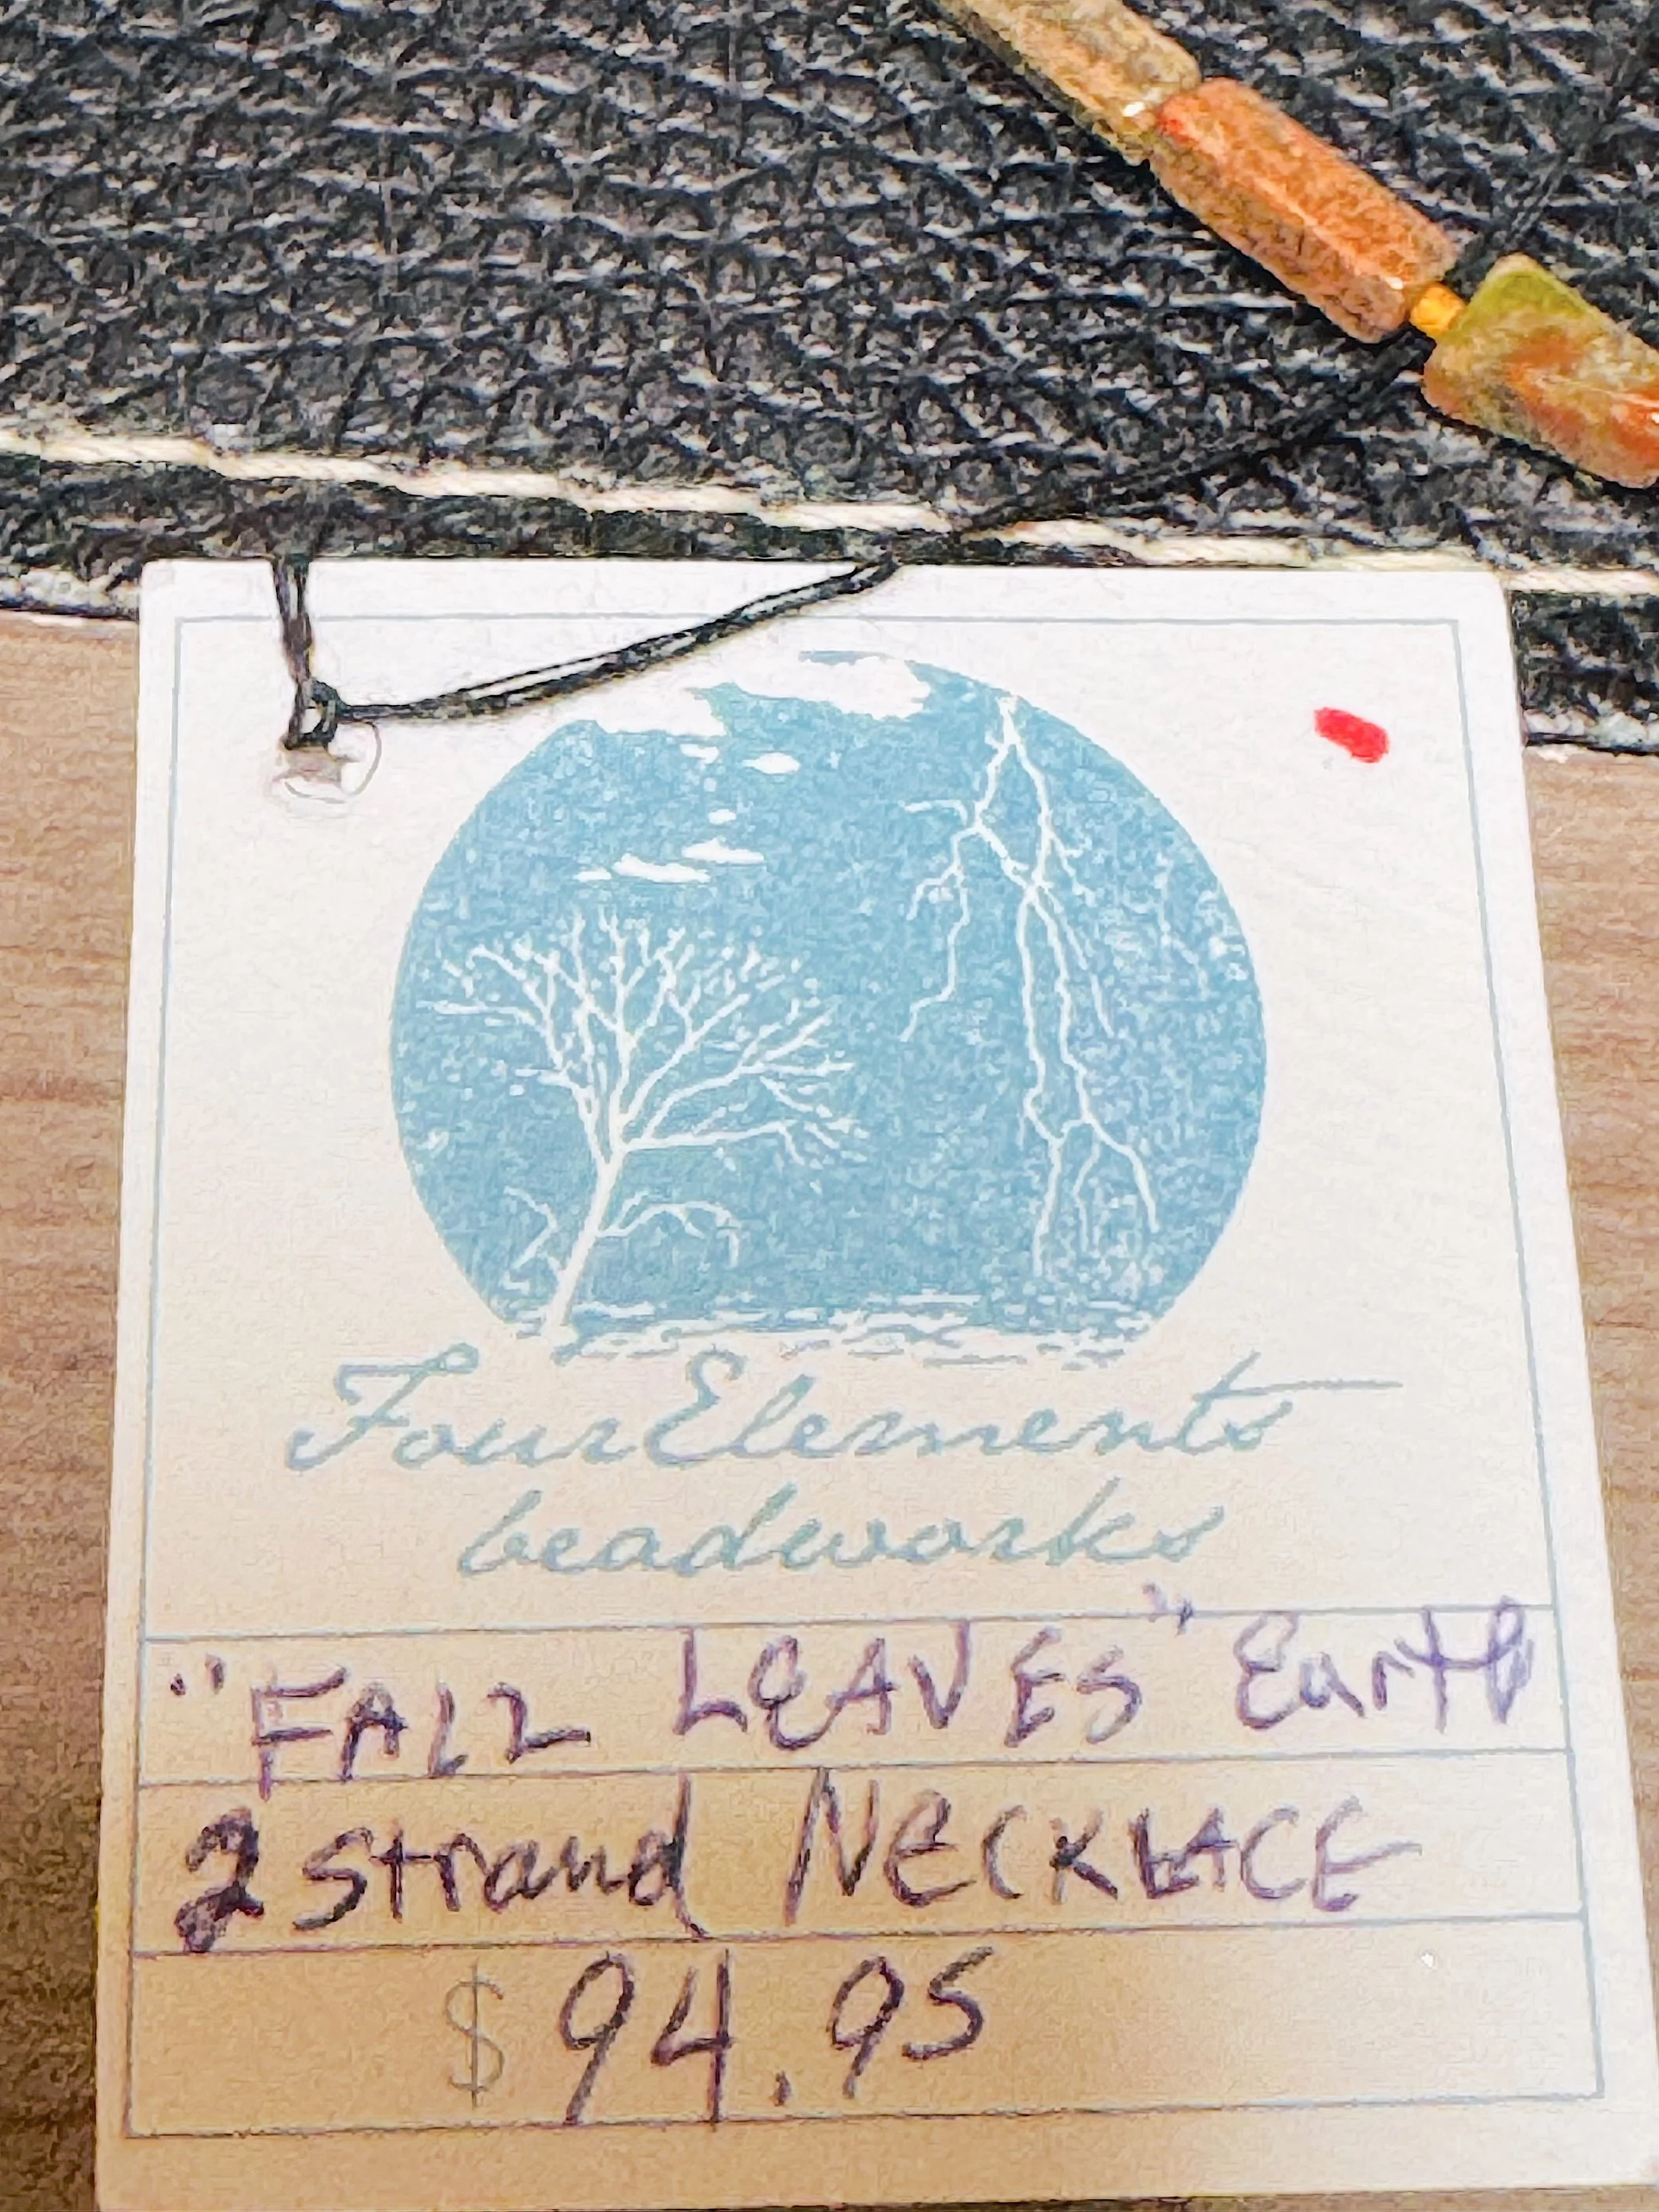 FourElements
beadworks
"FALL LEAVES" Earth
2 strand NECKLACE
$94.95